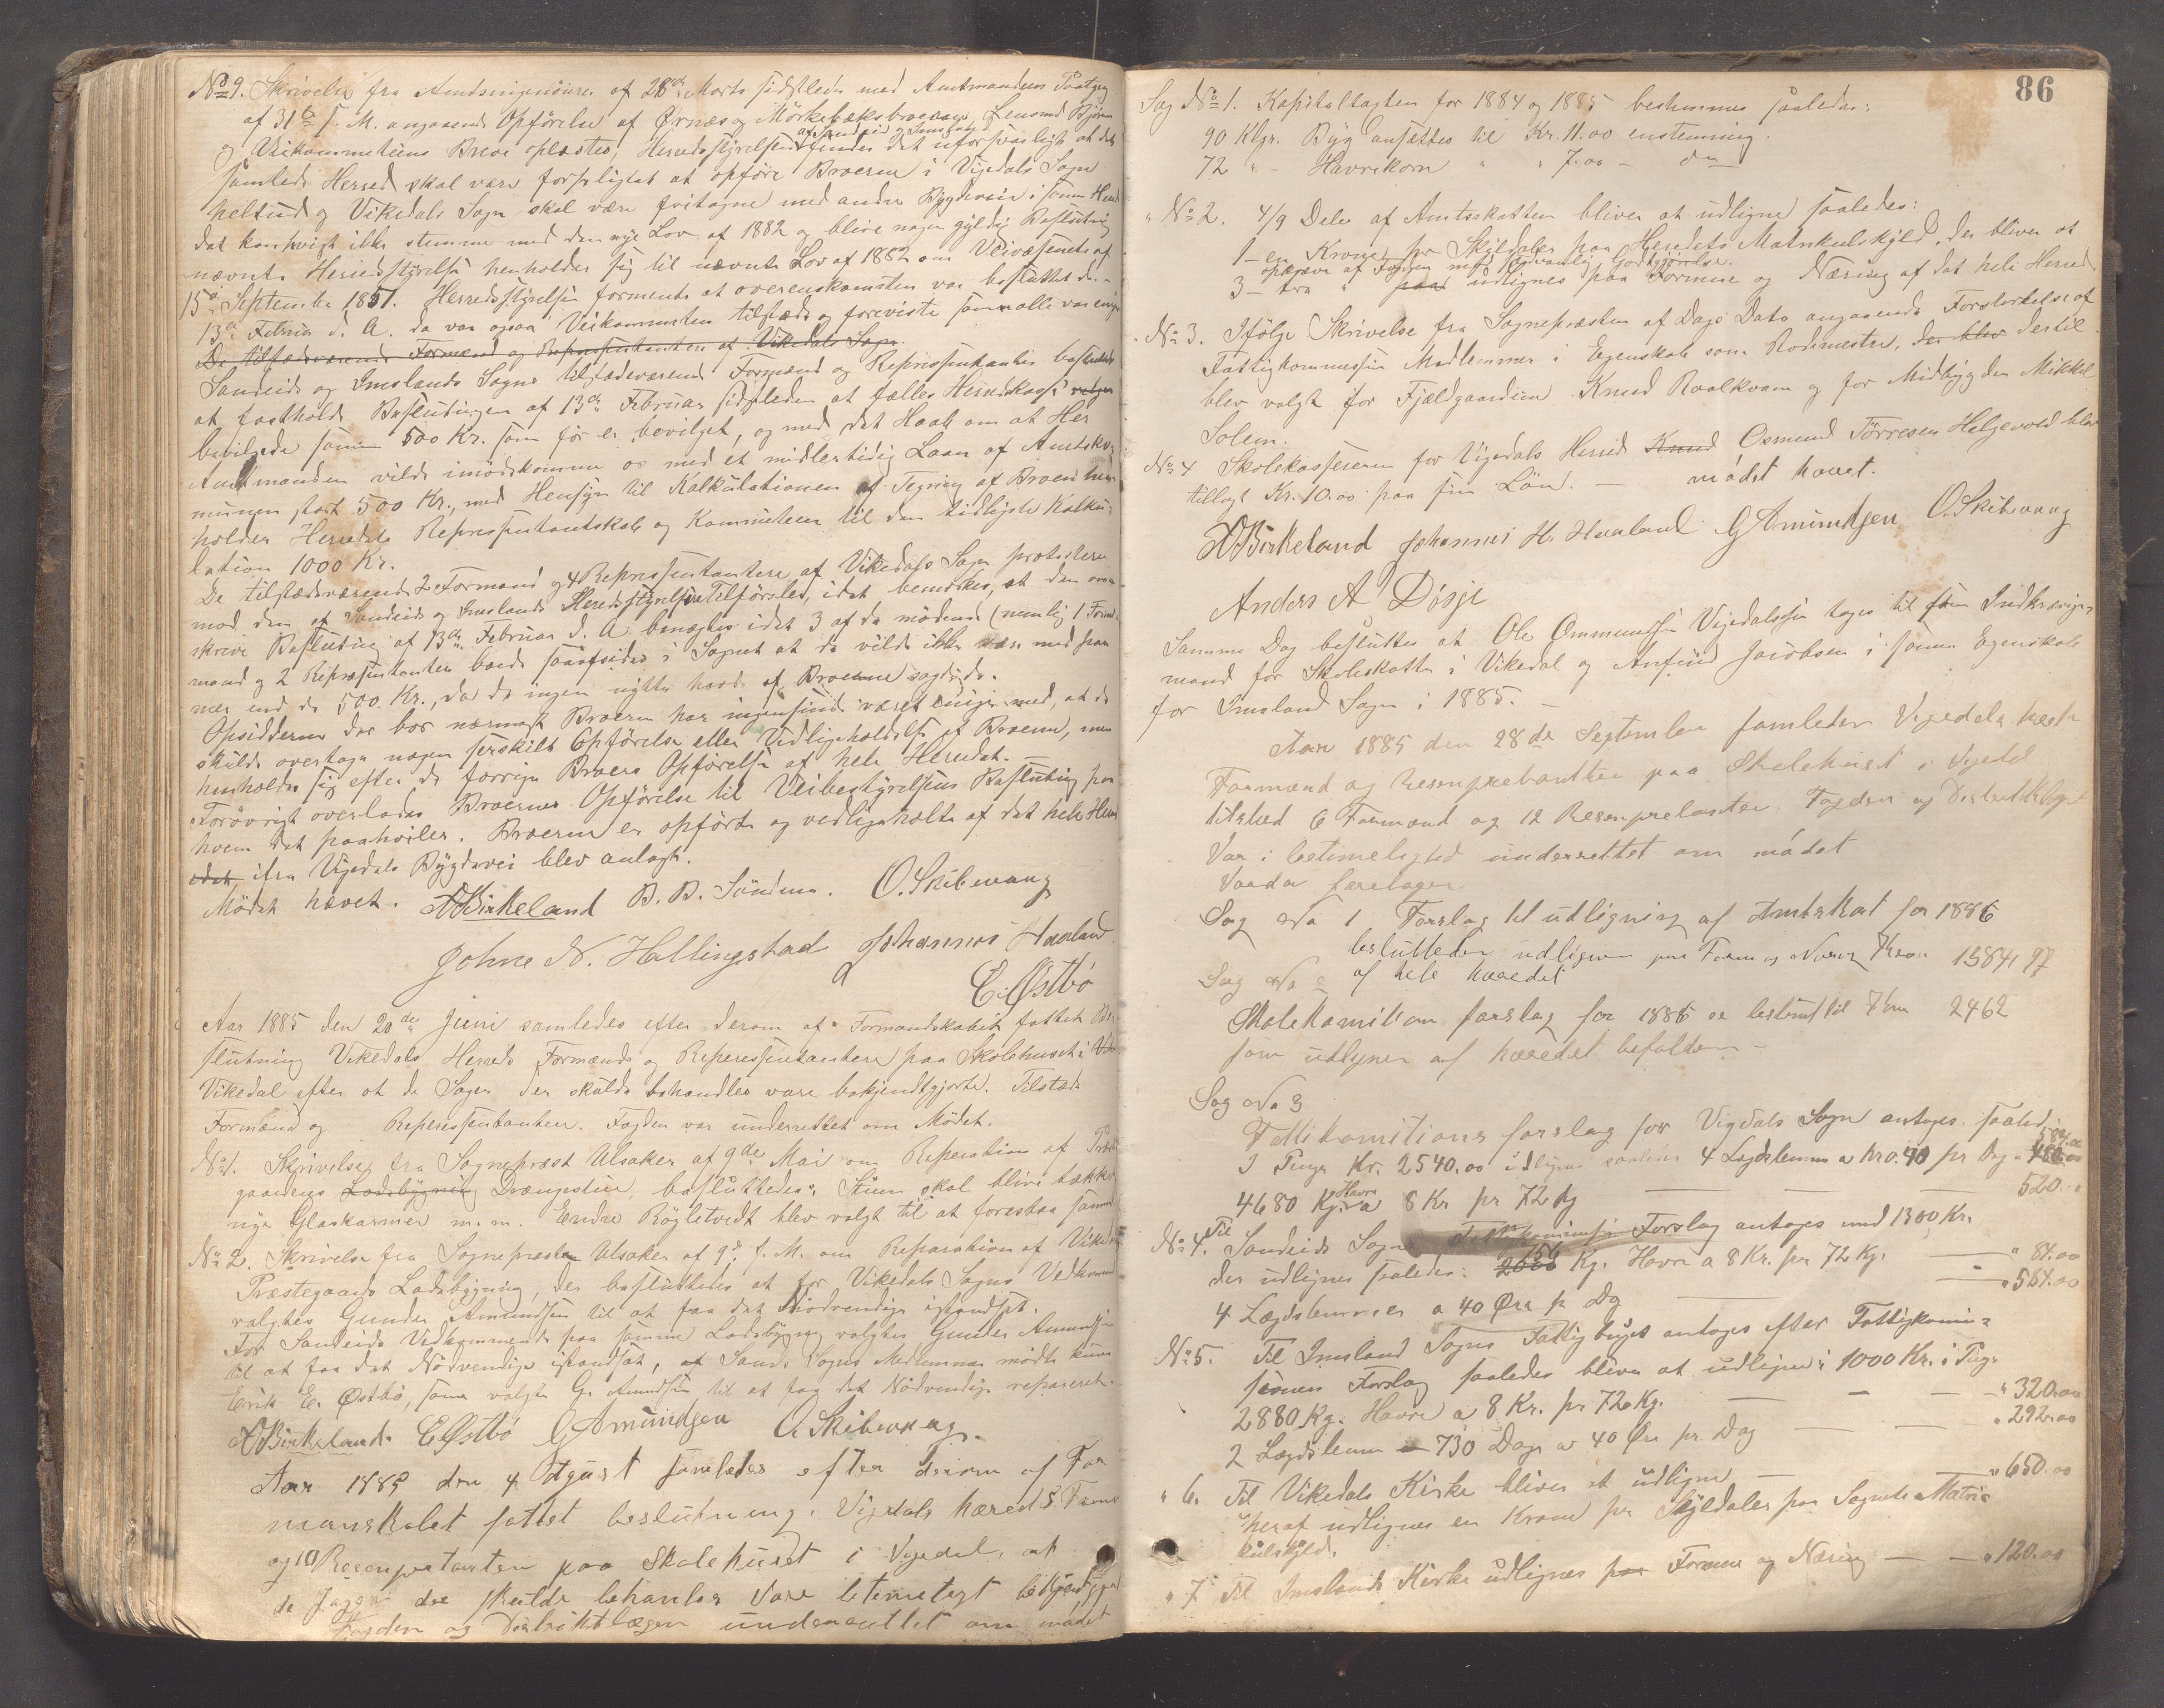 No 9. Skrivelse fra Amtsingeniøren af 28de Marts sidstleden med Amtmandens Paategn
af 31te s. M. angaaende Opførelse af Ørnæs og Mörkebæksbroerne, Lensmd Bjørn
og Veikommiteens Breve oplæstes; Herredsstyrelsen af Sandeid og Imsland finder det uforsvarligt at det
samlede Herred skal være forpligtet at opføre Broerne i Vigedals Sogn
heltud og Vikedals Sogn skal være fritagne med andre Bygdeveie i samme Herred
det kan heiligt ikke stemme med den nye Lov af 1882 og blive nogen gyldig Beslutning
nævnte Herredsstyrelse henholder sig til nævnte Lov af 1882 om Veivæsenet af
15de September 1851. Herredsstyrelsen formente at overenskomsten var besluttet den
13de Februar d. A. da var ogsaa Veikommiteen tilstæde og foreviste som alle var enige
De tilstædeværende Formænd og Repræsentantere af Vikedals Sogn.
Sandeids og Imslands Sogns tilstædeværende Formænd og Representanter besluttede
at fastholde Beslutningen af 13de Februar sidstleden at fælles Herredskasse
bevilgede somme 500 Kr. som før er bevilget, og med det Haab om at Her
Amtmanden vilde imødekomme os med et midlertidig Laan af Amtskom-
munen stort 500 Kr., med Hensyn til Kalkulationen af Tegning af Broen hen-
holder Herredets Representantskab og Kommiteen til den tidligste Kalku-
lation 1000 Kr.
De tilstædeværende 2 Formænd og 4 Representantere af Vikedals Sogn protesterer
mod den af Sandeids og Imslands Heredsstyrelsen Tilførsler, idet bemærkes, at den oven-
skrive Beslutning af 13de Februar d. A. benægtes idet 3 af de mødende (nemlig 1 Form-
mand og 2 Repræsentanter boede i Sognet at de vilde ikke være med paa
mer end de 500 Kr., da de ingen nytte havde af Broerne sagde de.
Opsidderne der bor nærmest Broerne har ingensinde været enige med, at de
skulde overtage nogen særskilt Opførelse eller Vedligeholdelse af Broerne, men
henholder sig efter de forrige Broers Opførelse af hele Heredet.
Forøvrigt overlades Broernes Opførelse til Veibestyrelsens Beslutning paa
hvem det paahviler. Broerne er opførte og vedligeholdte af det hele Herred
edet, ifra Vigedals Bygdevei blev anlagt.
Mødet hævet. ABirkeland B. B. Söndena. O. Skibevaag
Johne N. Hallingstad Johannes Haaland
E. Østbó
Aar 1885 den 20de Juni samledes efter derom af Formandskabet fattet Be-
slutning Vikedals Herreds Formænd og Reperessentantere paa Skolehuset i
Vikedal efter at de Sager der skulde behandles vare bekjendtgjorte. Tilstede
Formænd og Reperessentanter. Fogden var underrettet om Mødet.
No 1. Skrivelse fra Sogneprest Alsaker af 9de Mai om Reperation af Præste
gaardens Ladebygning Drængestue, besluttedes: Stuen skal blive tækket
nye Glaskarmer m. m. Endre Røgletvedt blev valgt til at forestaa samme
No 2. Skrivelse fra Sognepræsten Alsaker af 9de s. M. om Reparation af Vikedals
Præstegaards Ladebygning, der besluttedes at for Vikedals Sogns Vedkommende
valgtes Gunder Amundsen til at faa det Nödvendige istandsat.
For Sandeids Vedkommende paa samme Ladebygning valgtes Gunder Amundsen
til at faa det Nödvendige istandsat, af Sands Sogns Medlemmer mödte kun
Erik E. Østbö, som valgte G. Amundsen til at faa det Nödvendige repareret.
ABirkeland. E Østbó G Amundsen O. Skibevaag.
Aar 1885 den 4 Agust samledes efter derom af For
manskabet fattet beslutning. Vigedals hæred 5 Form
og 10 Resenpretanten paa Skolehuset i Vigedal, at
de sagger der skulde behanles vare betimeligt bekjendtgjort
Fogden og Distriktslægen underrettet om mødet
86
Sag No 1. Kapitaltagten for 1884 og 1885 bestemmes saaledes:
90 Klgr. Byg ansættes til Kr. 11.00 enstemmig.
72 " - Havrekorn " " 7.00 - do
" No 2. 4/9 Dele af Amtsskatten bliver at udligne saaledes:
1 - en Krone pr Skyldaler paa Heredets Matrikulskyld, der bliver at
opkræve af Fogden mod sedvanlig Godtgjørelse.
3 - tre " paa udlignes paa Formue og Næring af det hele Herred
No 3. Ifölge Skrivelse fra Sognepræsten af Dags Dato angaaende Forstærkelse af
Fattigkommissions Medlemmer i Egenskab som Rodemester, der blev dertil
blev valgt for Fjeldgaardene Knud Raalkvam og for Midbygden Mikkel
Solem.
No 4 Skolekassereren for Vigedals Herred Knud Osmund Törresen Helgevold blev
tillagt Kr. 10.00 paa sin Lön. — mødet hævet.
ABirkeland Johannes H. Haaland G Amundsen O. Skibevaag
Anders A Dösje
Samme Dag besluttes at Ole Ommundsen Vigedalssen tages til sin Indkrævings-
mand for Skoleskatten i Vikedal og Anfind Jacobsen i samme Egenskab
for Imsland Sogn i 1885. —
Aar 1885 den 28de September samledes Vigedals hereds
Formænd og Resenprebantter paa Skolehuset i Vigedal
tilsted 6 Formænd og 12 Resenpretanter. Fogden og Distrektslæge
Var i betimelighed underrettet om mødet
Vaarder foretager
Sag No 1 Forslag til udligning af Amtskat for 1886
besluttedes udlignes paa Form og Nærig Kron 1584,97
af hele hæredet
Sag No 2
Skolekomition forslag for 1886 er bestemt til Kron 2462
som udlignes af hæredet befalder —
Sag No 3
Fattikomitions forslag for Vigdals Sogn antages saaled
I Penge Kr. 2540.00 udlignes saaledes 4 Lægdslemmer a Kr 0.40 pr Dag - 584.00
4680 Kg. Havre a 8 Kr pr 72 Kg — — — 520 "
No 4. Til Sandeids Sogn Fattikommissi Forslag antages med 1300 Kr.
der udlignes saaledes: 756 Kg. Havre a 8 Kr. pr 72 Kg. — " 84.00
4 Lægdslemmer a 40 Øre p Dag — " 584.00
No 5. Til Imsland Sogns Fattigbuget antages efter Fattigkomi-
sionens Forslag saaledes bliver at udligne: 1000 Kr. i Penge
2880 Kg. Havre a 8 Kr. pr 72 Kg. — — " 320.00
2 Lægdslemm = 730 Dage a 40 Øre pr. Dag — — " 292.00
" 6. Til Vikedals Kirke bliver at udligne — — " 650.00
heraf udlignes en Krone pr Skyldaler paa Sognets Matri-
kulskyld.
" 7 Til Imslands Kirke udlignes paa Formue og Næring — — " 120.00